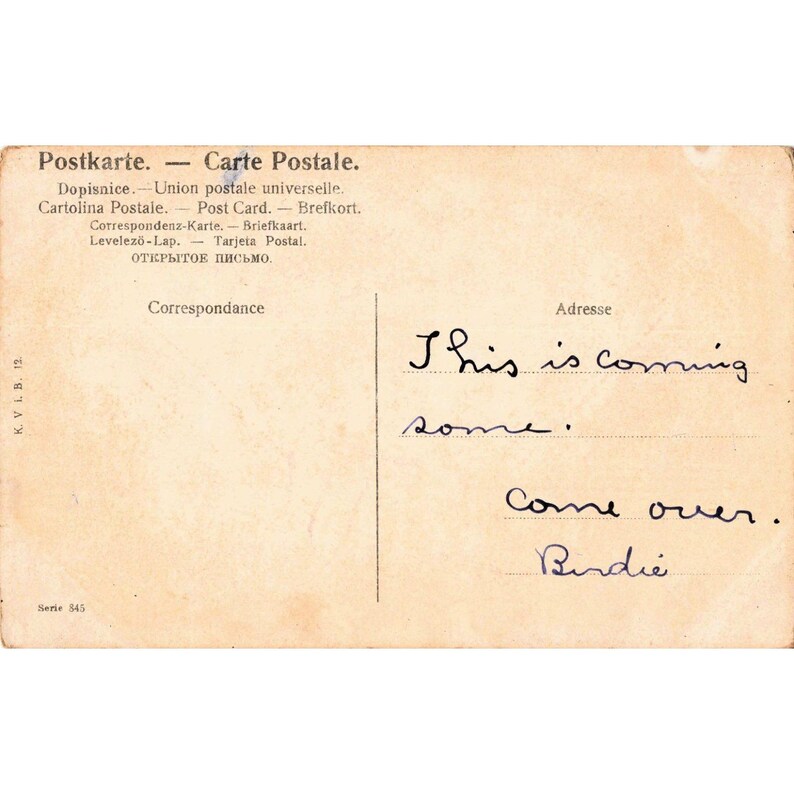 Postkarte. — Carte Postale.
Dopisnice. — Union postale universelle.
Cartolina Postale. — Post Card. — Brefkort.
Correspondenz-Karte. — Briefkaart.
Levelező-Lap. — Tarjeta Postal.
ОТКРЫТОЕ ПИСЬМО.
Correspondance
Adresse
This is coming
some.
Come over.
Birdie
K. V i. B. 12.
Serie 845